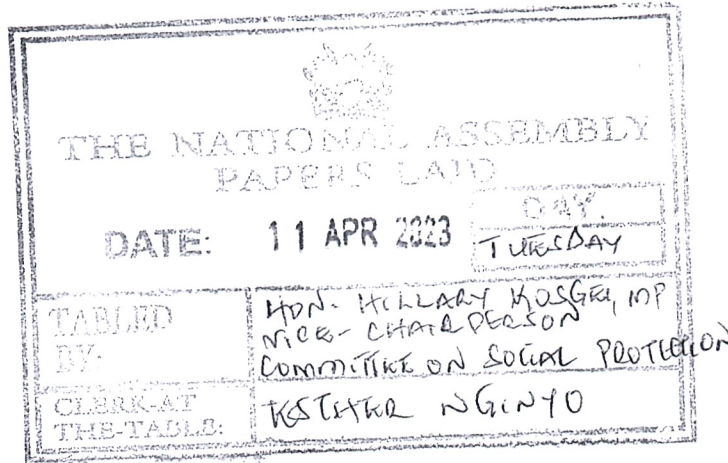 THE NATIONAL ASSEMBLY
PAPERS LAID
DATE: 11 APR 2023
DAY.
TUESDAY
TABLED BY:
HON. HILLARY KOSGEI, MP
VICE-CHAIRPERSON
COMMITTEE ON SOCIAL PROTECTION
CLERK-AT THE-TABLE:
ESTHER NGINYO